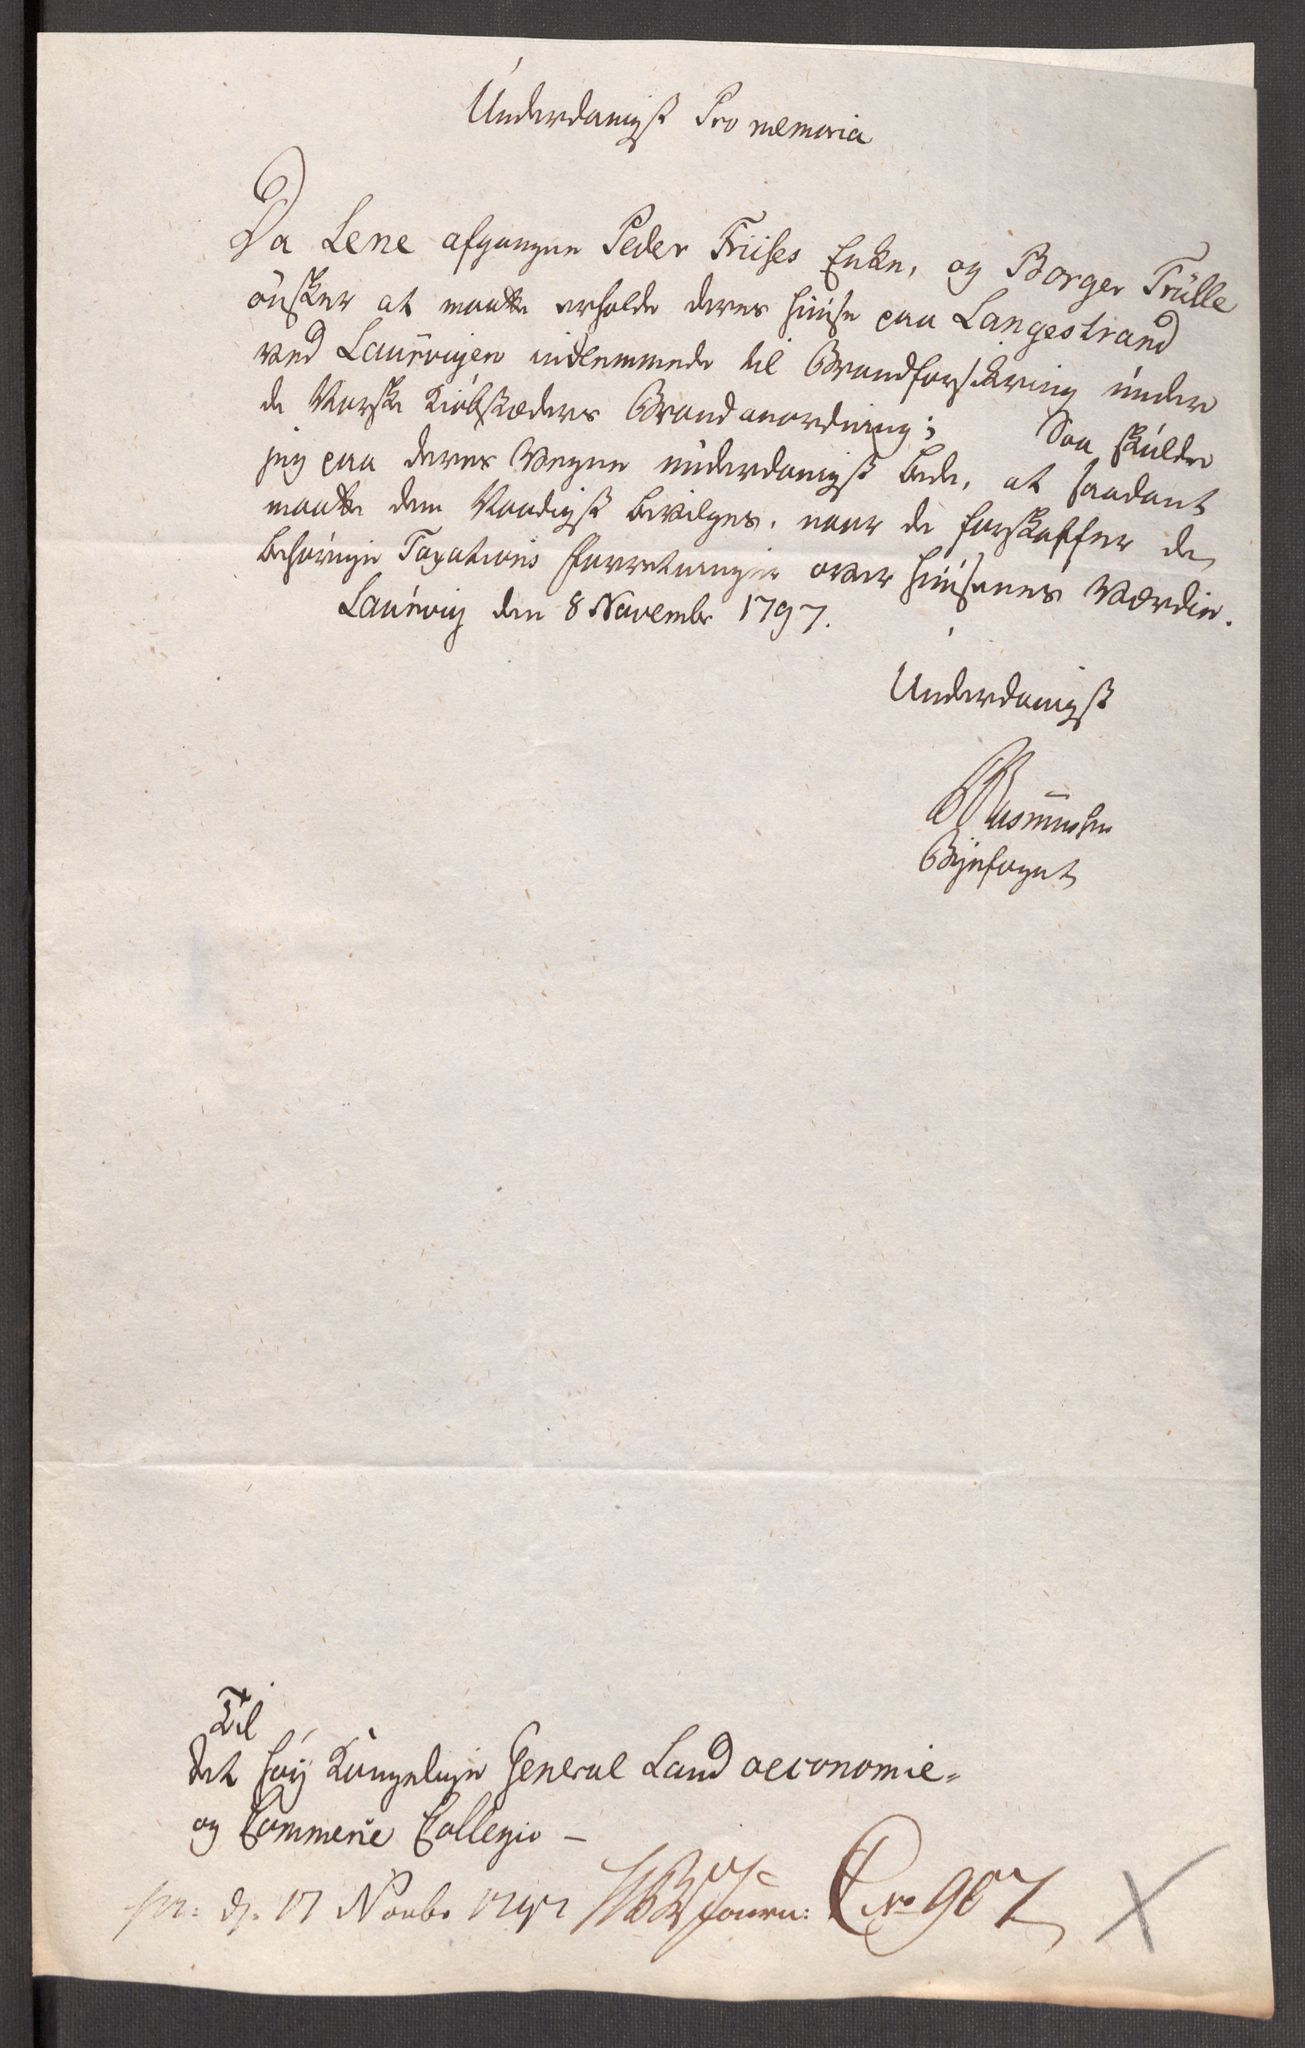 Underdanigst Pro memoria
Da Lene afgangne Peder Friises Enke, og Borger Trülle
ønsker at maatte erholde deres Huuse paa Langestrand
ved Laurvigen indlemmede til Brandforsikring under
de Norske Kiøbstæders Brandanordning; Saa skulde
jeg paa deres Vegne underdanigst bede, at saadant
maatte dem Naadigst bevilges, naar de forskaffer de
behørige Taxations Forretninger over Huusenes Værdie.
Laurvig den 8 Novembr 1797.
Underdanigst
Rasmussen
Byefoget
Til
Det høy Kongelige General Land oeconomie-
og Commerce Collegio -
pr: d. 17 Novbr 1797 Journ: No 967